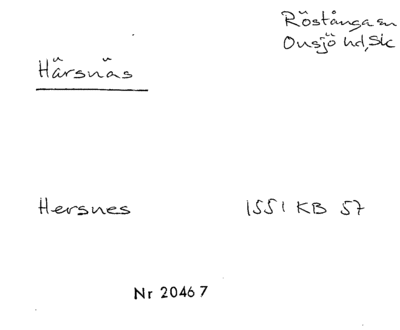 Röstånga sn
Onsjö hd, Sk
Härsnäs
Hersnes 1551 KB 57
Nr 20467